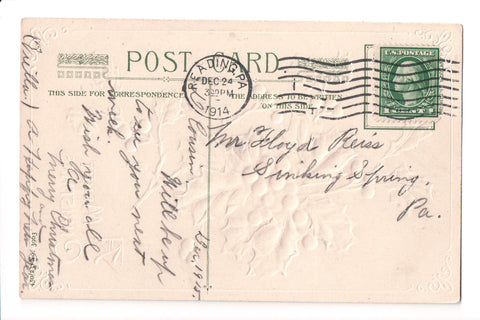 POST CARD
THIS SIDE FOR CORRESPONDENCE
THE ADDRESS TO BE WRITTEN
ON THIS SIDE.
READING, PA.
DEC 24
1914
U.S. POSTAGE
Mr. Floyd Reiss
Sinking Spring,
Pa.
Cousin,
Will be up
to see you next
week.
Wish you all
a
Merry Christmas
and
a Happy New Year.